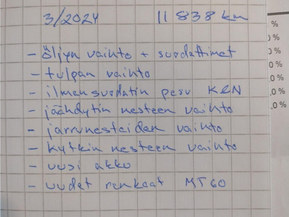 3/2024 11 838 km
- Öljyn vaihto + suodattimet
- tulpan vaihto
- ilmansuodatin pesu K&N
- jäähdytin nesteen vaihto
- jarrunesteiden vaihto
- kytkin nesteen vaihto
- uusi akku
- uudet renkaat MT60
%
0%
0%
0%
.0%